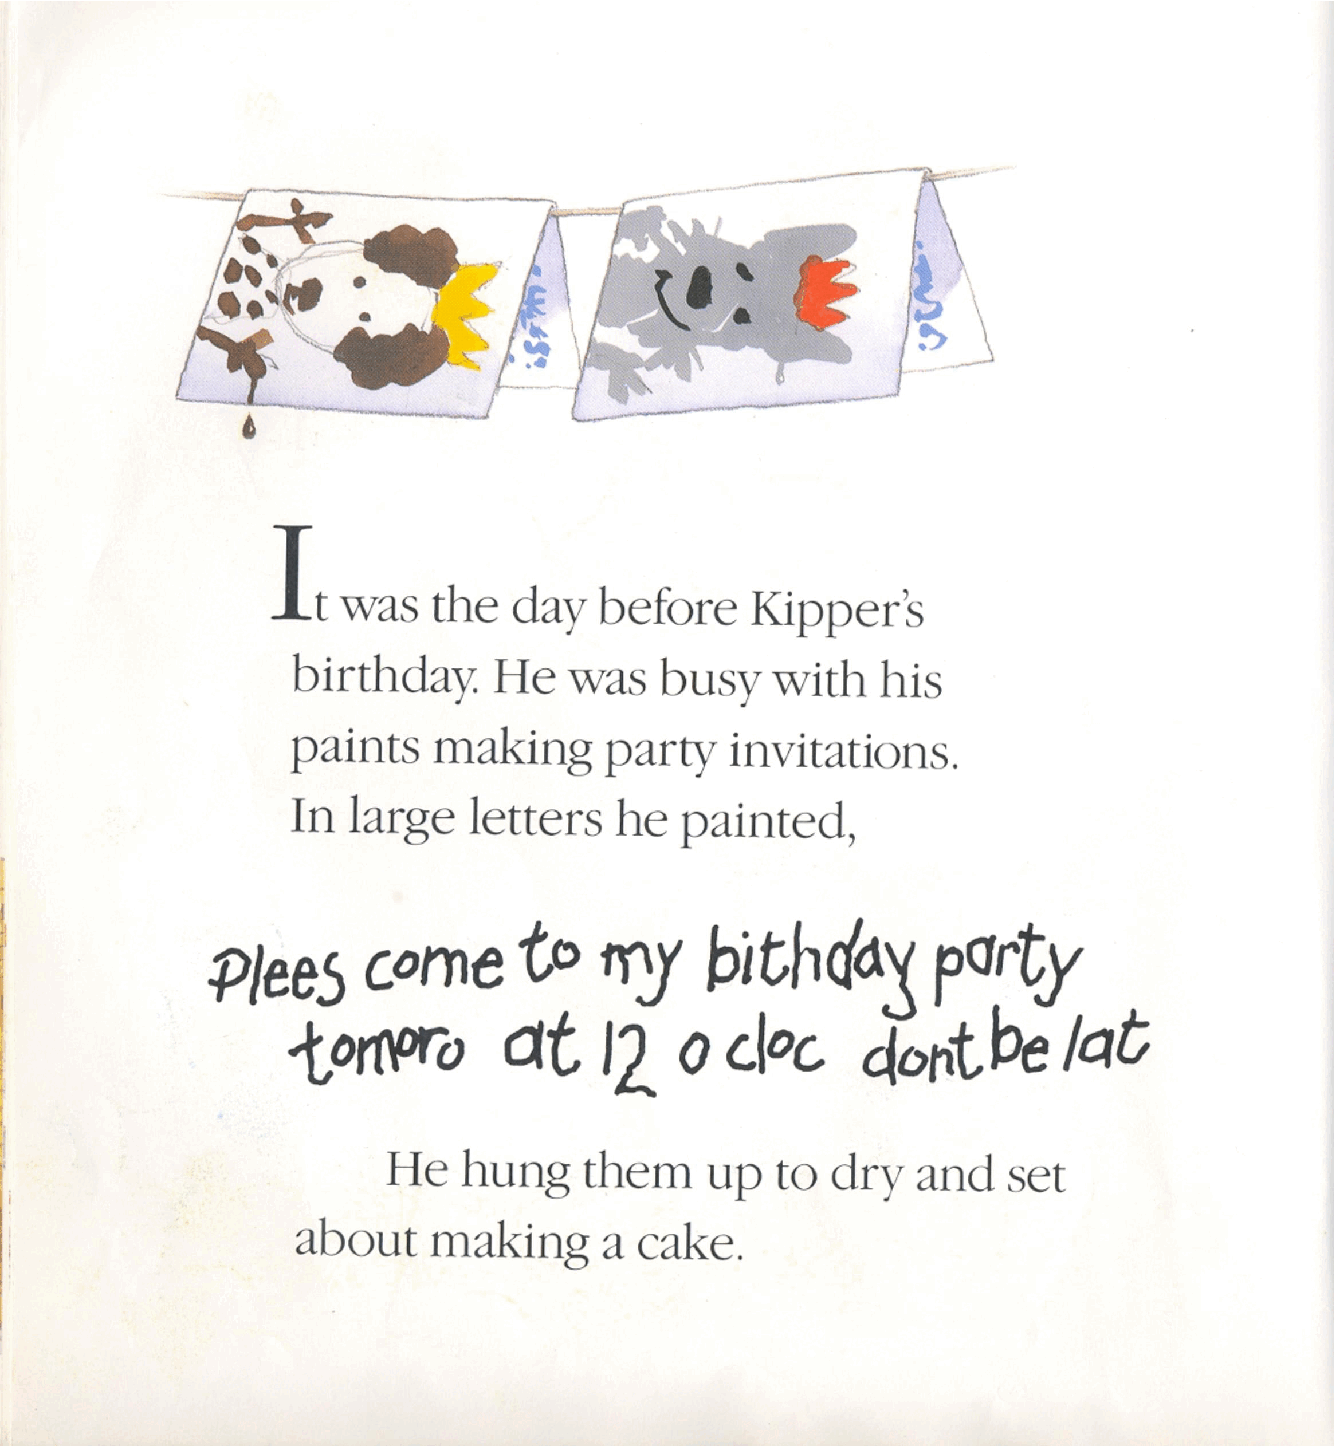 It was the day before Kipper's
birthday. He was busy with his
paints making party invitations.
In large letters he painted,
Plees come to my bithday party
tomoro at 12 o cloc dont be lat
He hung them up to dry and set
about making a cake.